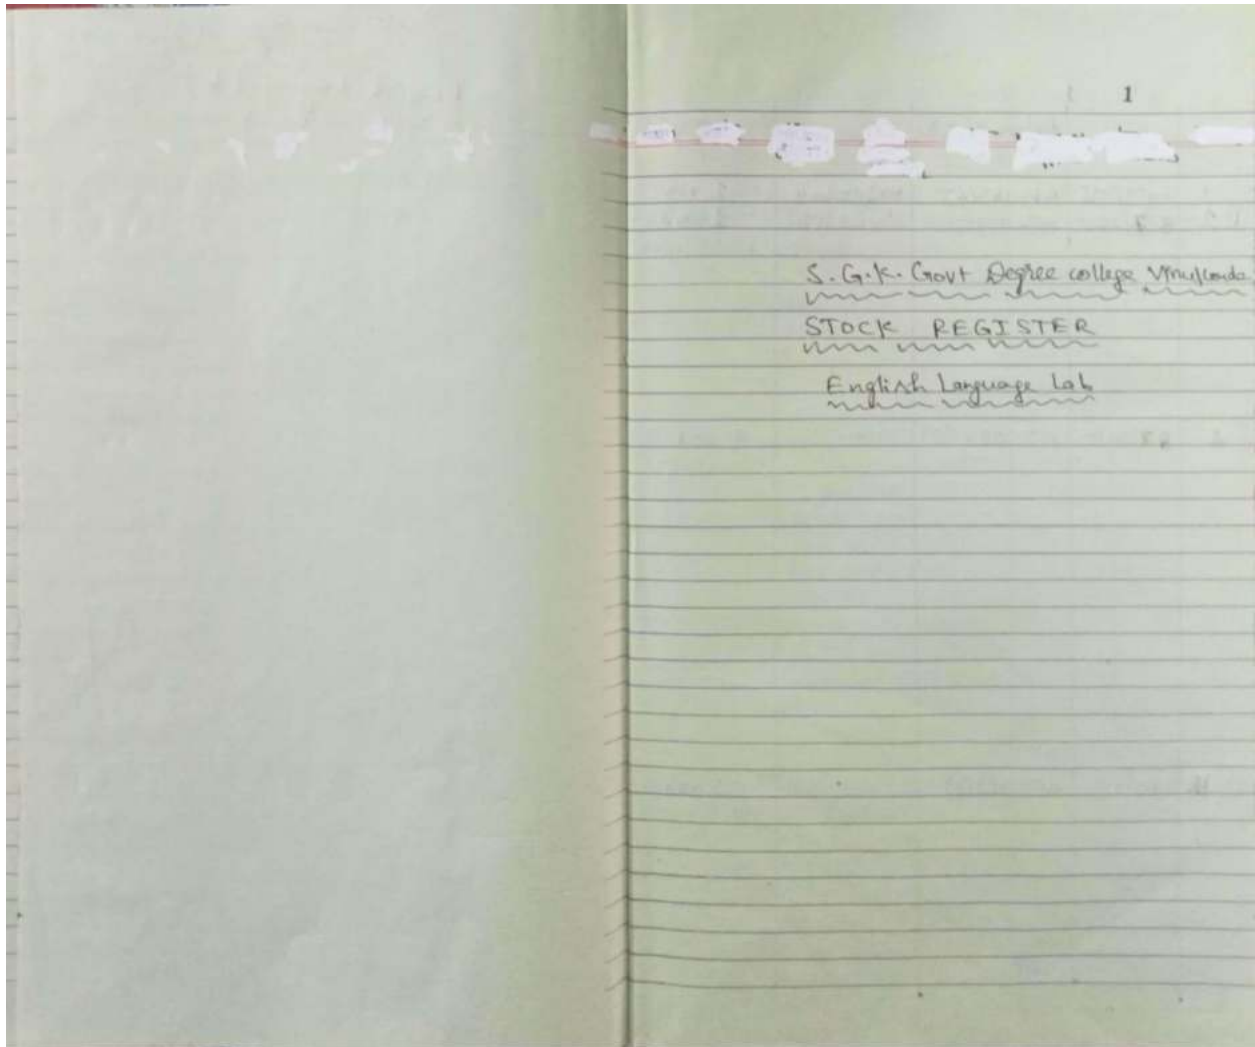 1
S.G.K. Govt Degree college Vinukonda
STOCK REGISTER
English Language Lab